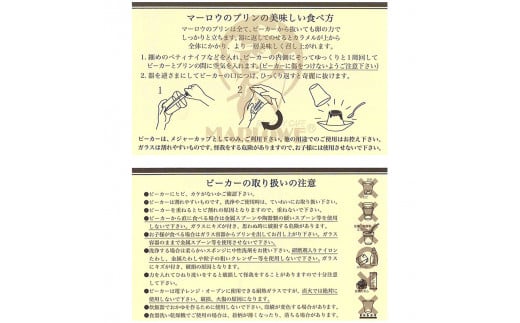 マーロウのプリンの美味しい食べ方
マーロウのプリンは全て、ビーカーから抜いても卵の力で
しっかりと立ちます。器に返してのせるとカラメルが上から
全体にかかり、より一層美味しく召し上がれます。
1. 細めのペティナイフなどを入れ、ビーカーの内側にそってゆっくりと1周回して
ビーカーとプリンの間に空気を入れます。(ビーカーに傷をつけないようご注意下さい)
2. 器を逆さまにしてビーカーの口につけ、ひっくり返すと奇麗に抜けます。
1
2
MARLOWE®
ビーカーは、メジャーカップとしてのみ、ご利用下さい。他の用途でのご使用はお控え下さい。
ガラスは割れやすいものです。怪我をする危険がありますので、お子様には使用させないで下さい。
ビーカーの取り扱いの注意
●ビーカーにヒビ、カケがないかご確認下さい。
●ビーカーは割れやすいものです。洗浄やご使用時は、ていねいにお取り扱い下さい。
●ビーカーを重ねるとヒビ割れの原因となりますので、重ねないで下さい。
●ビーカーから直に食べる場合は金属スプーンや陶器製の硬いスプーン等を使用
しないで下さい。ガラスにキズが付き、思わぬ時に破損する危険があります。
●お子様が食べる場合はガラス容器からプリンを出してお召し上がり下さい。ガラス
容器のままで金属スプーン等を使用させないで下さい。
●洗浄する場合は柔らかいスポンジに中性洗剤をお使い下さい。研磨剤入りナイロン
たわし、金属たわしや粒子の粗いクレンザー等を使用しないで下さい。ガラス
にキズが付き、破損の原因となります。
●力を入れてひねり洗いをすると破損して怪我をすることがありますので十分注意
して下さい。
●ビーカーは電子レンジ・オーブンに使用できる耐熱ガラスですが、直火では絶対に
使用しないで下さい。破損、火傷の原因になります。
●炊飯器でおかゆを作るために使用しないで下さい。溶融が変色する場合があります。
●食器洗い乾燥機でご使用の場合は、柄が薄くなったり、落ちる場合があります。